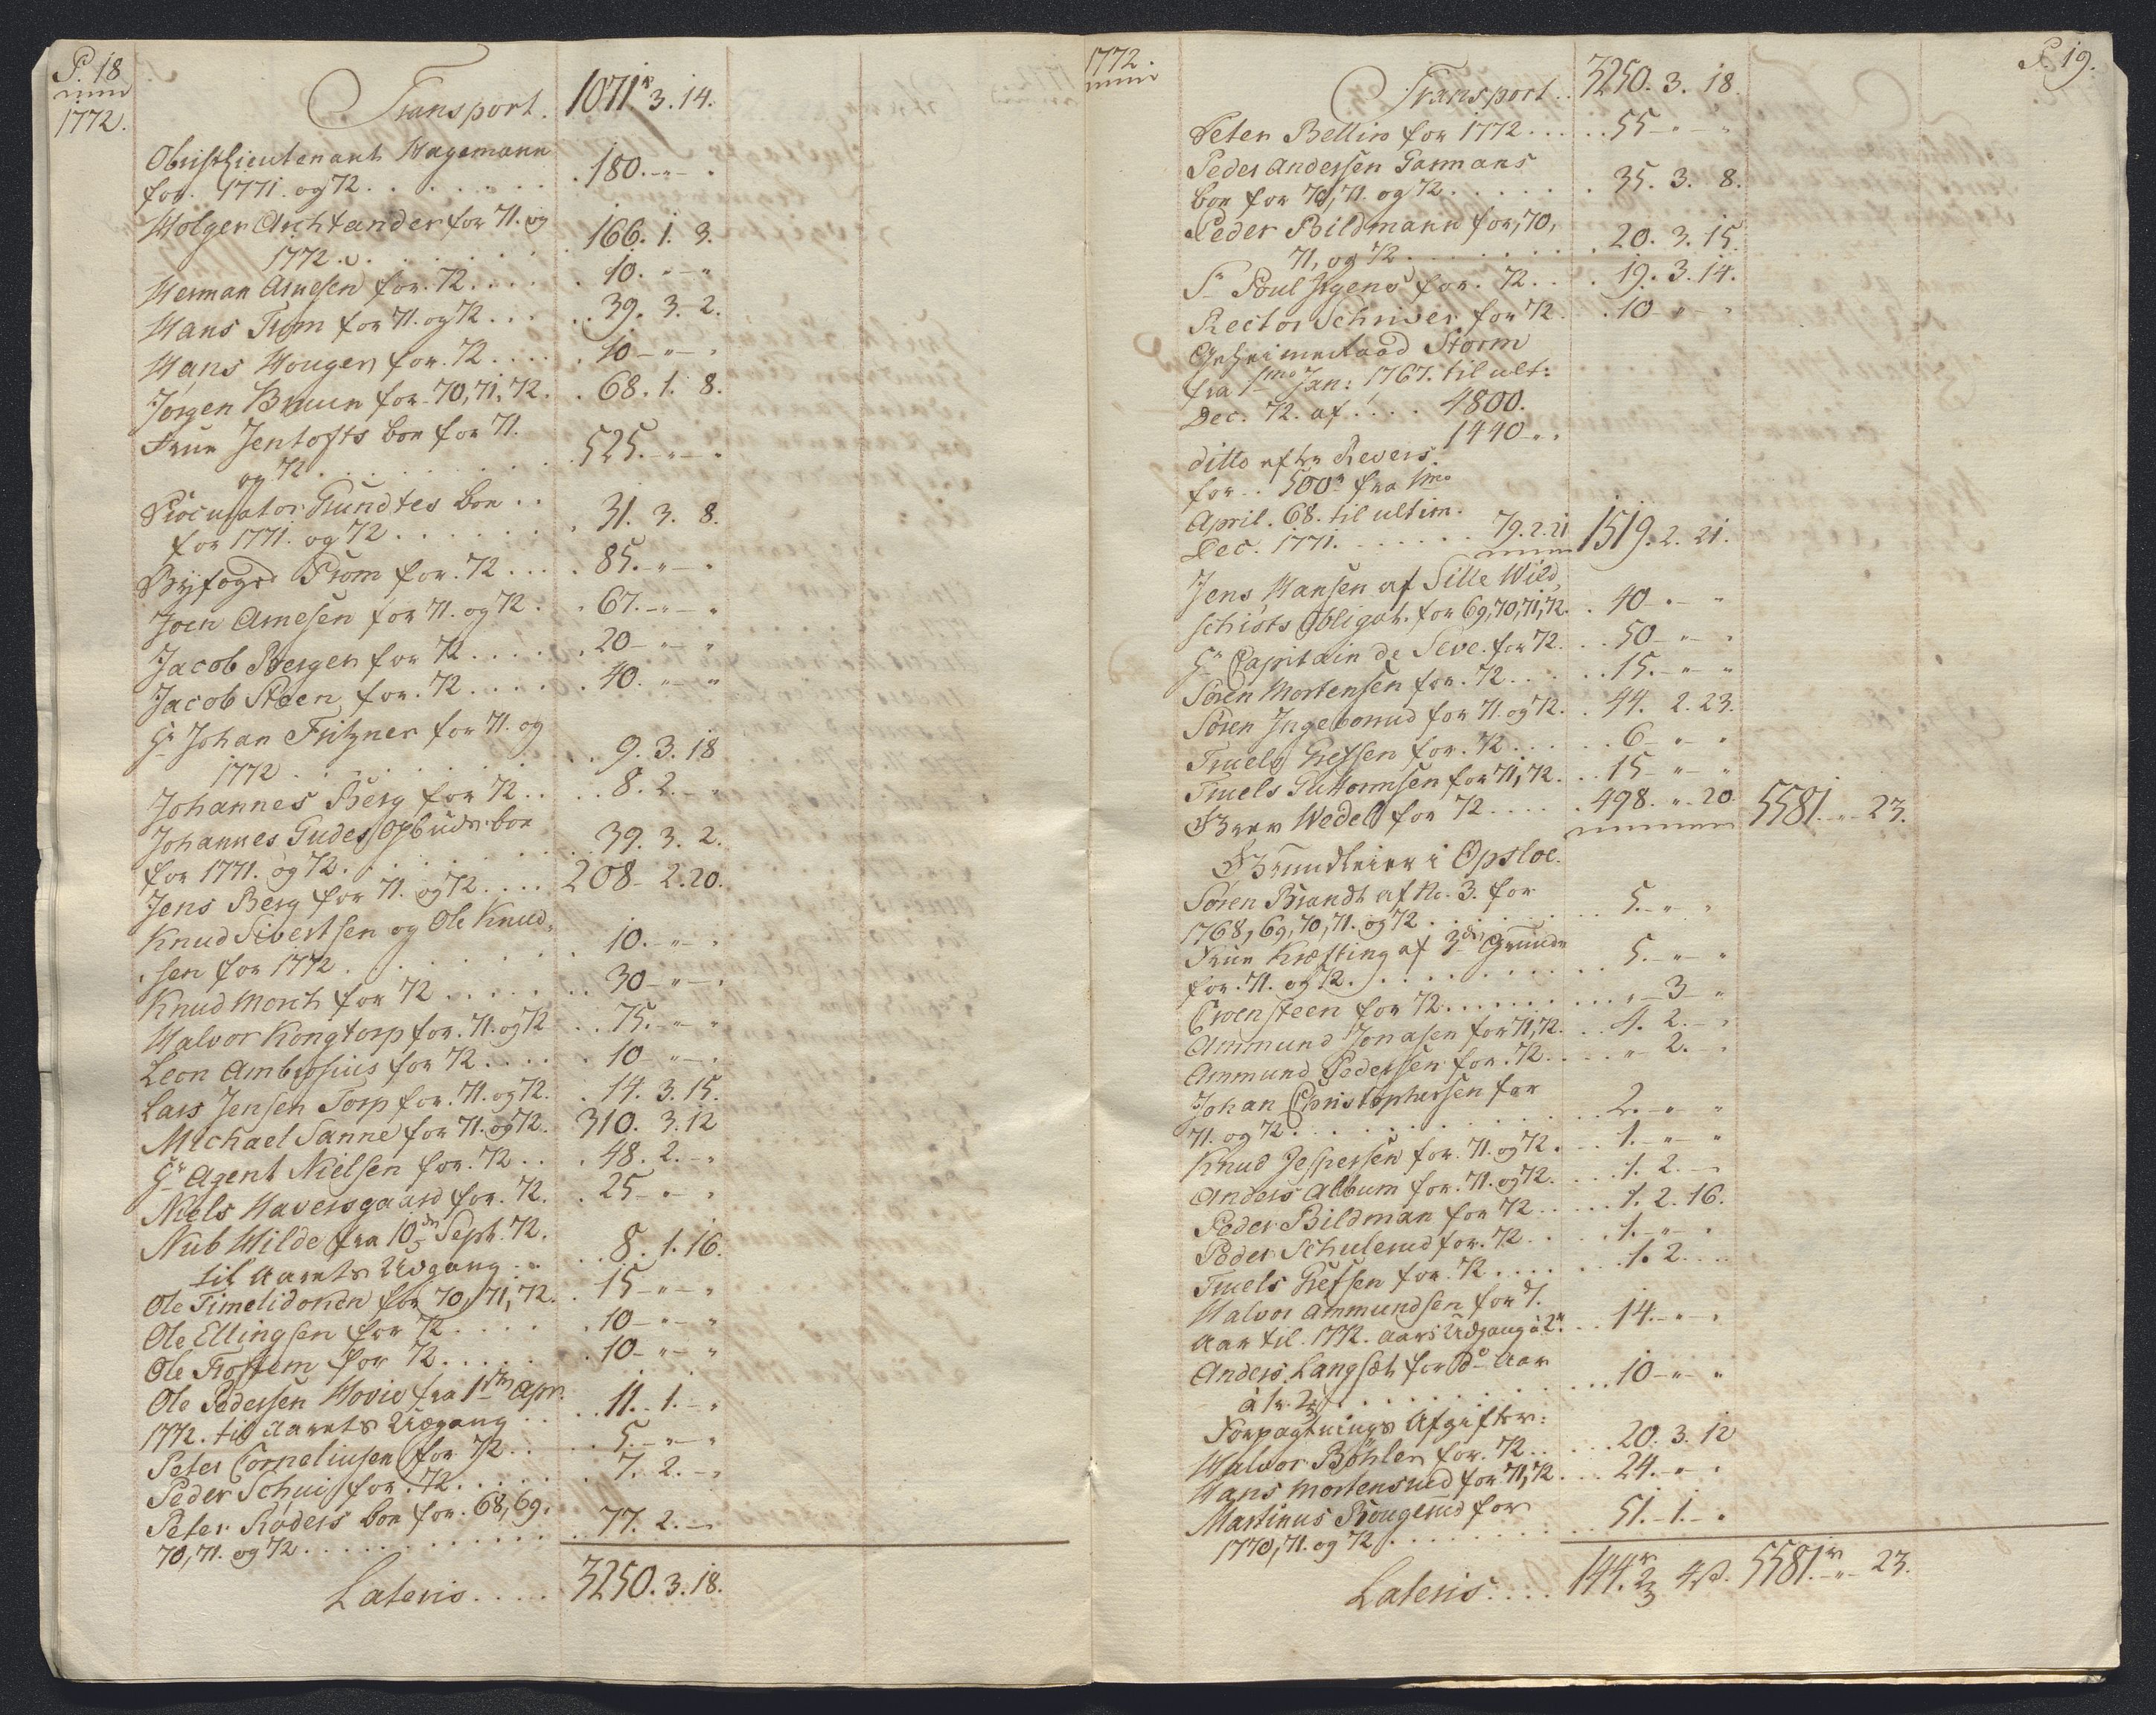 P. 18
1772.
Transport. 1071r 3. 14.
Obristlieutenant Hagemann
for. 1771. og 72. . . . . . . . 180. -"- .
Holger Ancktander for 71. og
1772. . . . . . . . 166. 1. 3.
Herman Arnesen for. 72. . . . . 10. "-"
Hans Trom for 71. og 72 . . . . 39. 3. 2.
Hans Hougen for. 72. . . . . 10-"- .
Jörgen Bruun for. 70, 71, 72. . 68. 1. 8.
Frue Jentofts boe for 71.
og 72. . . . . . . . . 525. -"- .
Procurator Grundtes boe . .
for 1771. og 72 . . . . . . . 31. 3. 8.
Byfoged Prom for. 72 . . . . 85. -"- .
Joen Arnesen for 71. og 72 . . 67. -"- .
Jacob Bergen for 72 . . . . . 20-"- "
Jacob Steen for. 72 . . . . . 40. "- "
Hr Johan Fritzner for 71. og
1772 . . . . . . . . . 9. 3. 18
Johannes Berg for 72 . . . . 8. 2. - "
Johannes Gudes Opbuds boe
for 1771. og 72. . . . . . . . . 39. 3. 2.
Jens Berg for 71. og 72 . . . . 208- 2. 20.
Knud Sivertsen og Ole Knud-
sen for 1772 . . . . . . . . 10. -"- .
Knud Morch for 72 . . . . . . 30-"- .
Halvor Kongtorp for. 71. og 72 . . 75. -"- "
Leon Ambrosius for 72 . . . . . 10-"- .
Lars Jensen Torp for. 71. og 72. . 14. 3. 15.
Michael Sanne for 71. og 72. 310. 3. 12
Hr Agent Nielsen for. 72 . . . 48. 2. - "
Niels Haversgaard for. 72. . 25-"- .
Nub Wilde fra 10de Sept. 72.
til Aarets Udgang . . . . 8. 1. 16.
Ole Timelidonen for 70, 71, 72. . 15-"- .
Ole Ellingsen for 72 . . . . . 10-"- "
Ole Trostem for 72 . . . . . . 10-"- "
Ole Pedersen Hovie fra 1ste Apr.
1772. til Aarets Udgang . . . . 11. 1. - "
Peter Corneliusen for 72 . . . . 5. -"- "
Peder Schuis for. 72. . . . . . 7. 2. - "
Peter Röders boe for. 68, 69.
70, 71. og 72 . . . . . . . . . . . . 77. 2. -
Lateris . . . . 3250. 3. 18.
1772.
P. 19.
Transport . . 3250. 3. 18.
Peter Bellin for 1772 . . . . . 55-"- "
Peder Andersen Garmans
boe for 70, 71. og 72 . . . . . . . 35. 3. 8.
Peder Bildmann for, 70,
71, og 72 . . . . . . . . 20. 3. 15.
Sr Poul Jrgens for. 72. . . 19. 3. 14.
Rector Schriver for 72. . 10 -"- -
Geheimeraad Storm
fra 1mo Jan: 1767. til ult:
Dec. 72. af . . . . 4800.
1440 " .
ditto efter Revers
for . . 500r fra 1mo
April. 68. til ultim.
Dec. 1771. . . . . . . 79. 2. 21 1519. 2. 21.
Jens Hansen af Sille Wild
schiöts Obligat. for 69, 70, 71, 72. . 40 - - "
Hr Capitain de Seve. for 72. . . 50-"- .
Sören Mortensen for. 72. . . . . 15. -"- "
Sören Ingeborrud for 71. og 72. . 44. 2. 23.
Truels Gretsen for. 72 . . . . . . 6-"- "
Truels Guttormsen for 71, 72. . . 15-"- "
Frue Wedel for 72 . . . . . 498. "- 20. 5581. -"- 23.
Grundleier i Opsloe.
Sören Brandt af No. 3. for
1768, 69, 70, 71. og 72 . . . . . . . . 5. -"- "
Frue Kræfting af 3de Grunde
for. 71. og 72. . . . . . . . . . . 5. -"- "
Evensteen for 72. . . . . . . . . "- 3- "
Ammund Jonasen for 71, 72. . . 4. 2. - .
Ammund Pedersen for. 72. . . . "- 2. - .
Johan Christophersen for
71. og 72. . . . . . . . . . . 2. -"- "
Knud Jespersen for. 71. og 72 . . . 1. -"- "
Anders Album for. 71. og 72. . . . 1. 2. -
Peder Bildman for 72 . . . . . 1. 2. 16.
Peder Schulerud for. 72 . . . . 1. -"- .
Truels Gretsen for. 72 . . . . . . 1. 2. . . .
Halvor Ammundsen for 7.
Aar til. 1772. Aars Udgang à 2r. . . 14. -"- .
Anders Langsæt for Do Aar
à 1r. 2 . . . . . . . . . . 10-"- "
Forpagtnings Afgifter:
Halvor Böhlen for. 72. . . . . 20. 3. 12
Hans Mortensrud for 71, 72. . . 24. -"- .
Martinus Rougerud for
1770, 71. og 72 . . . . . . . . . . 51. -1. - .
Lateris . . . . 144r. 2 4ß. 5581r. -"- 23.